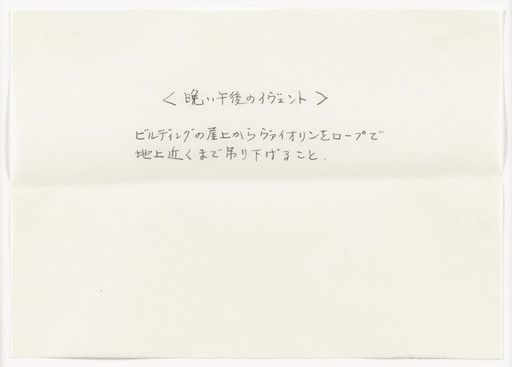 ＜ 晩い午後のイヴェント ＞
ビルディングの屋上からヴァイオリンをロープで
地上近くまで吊り下げること.